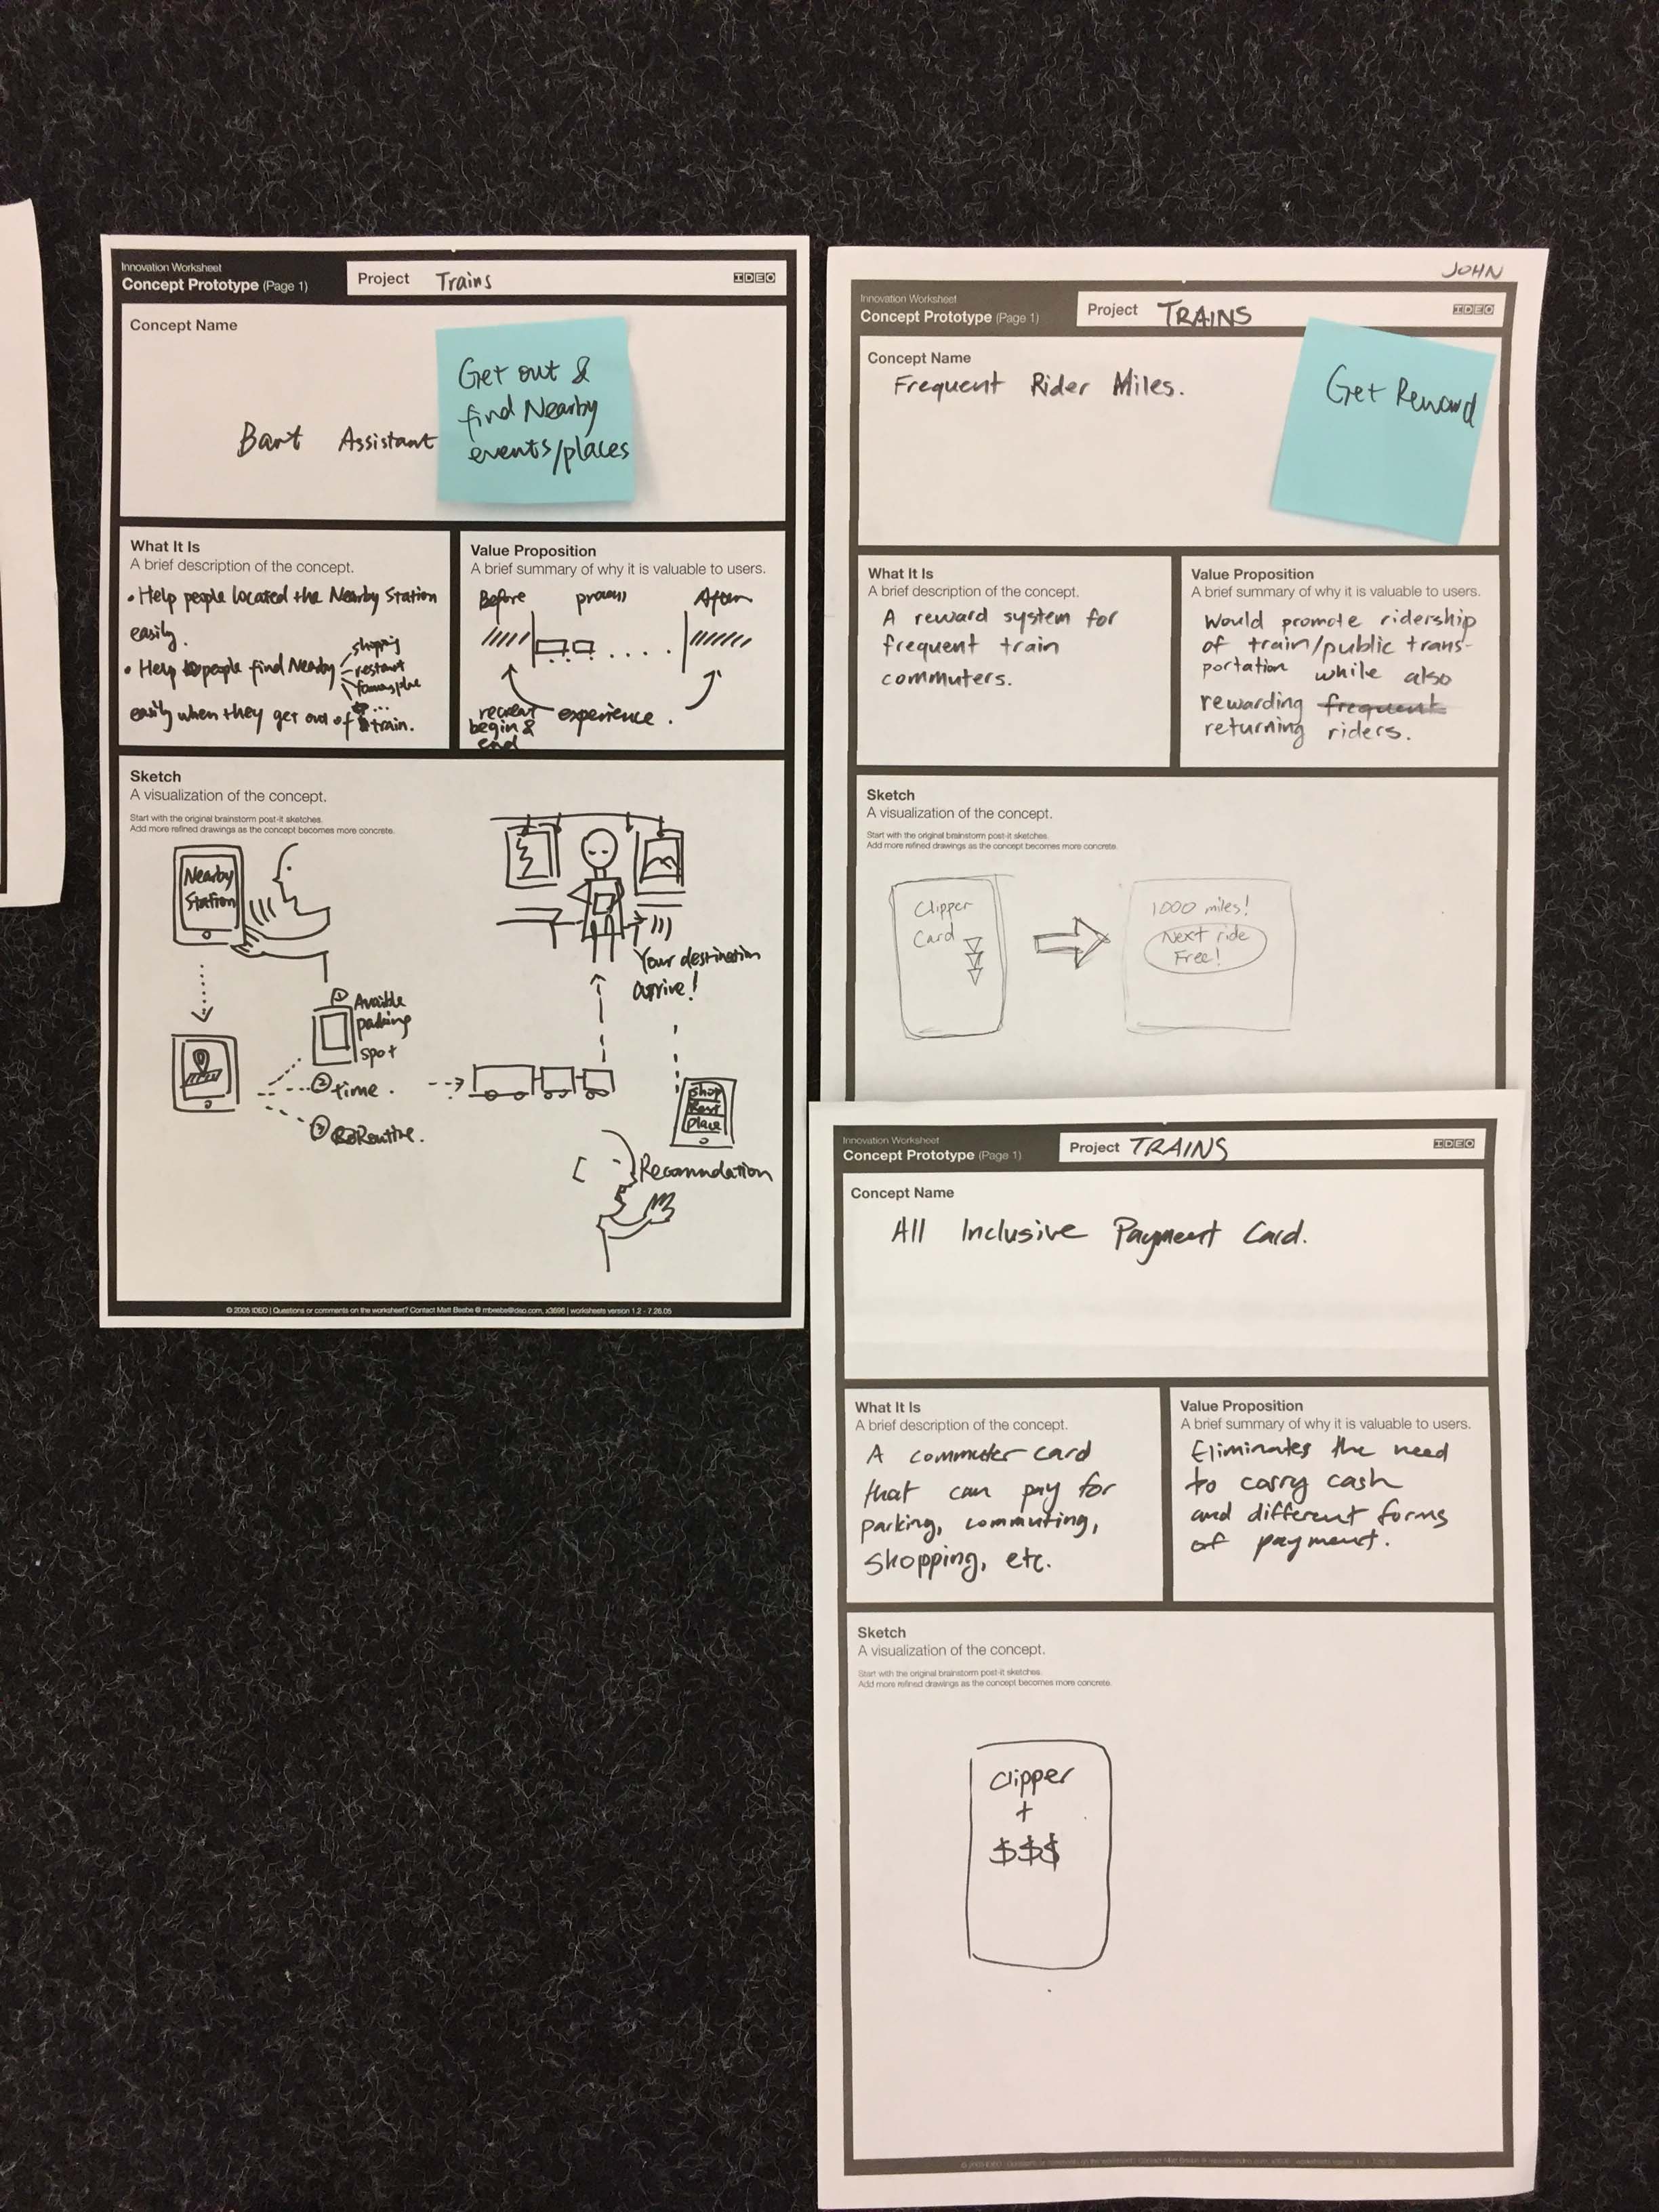 Innovation Worksheet
Concept Prototype (Page 1)
Project Trains
IDEO
Concept Name
Bart Assistant
Get out &
find Nearby
events/places
What It Is
A brief description of the concept.
• Help people located the Nearby Station
easily.
• Help people find Nearby
shopping
restaurant
easily when they get out of train.
Value Proposition
A brief summary of why it is valuable to users.
Before process After
recreat
begin &
end
experience.
Sketch
A visualization of the concept.
Start with the original brainstorm post-it sketches.
Add more refined drawings as the concept becomes more concrete.
Nearby
Station
① Avaible
parking
spot
② time.
③
Your destination
arrive!
shop
Rest
place
Recommdation
© 2005 IDEO | Questions or comments on the worksheet? Contact Matt Beebe @ mbeebe@ideo.com, x3696 | worksheets version 1.2 - 7.26.05
JOHN
Innovation Worksheet
Concept Prototype (Page 1)
Project TRAINS
IDEO
Concept Name
Frequent Rider Miles.
Get Reward
What It Is
A brief description of the concept.
A reward system for
frequent train
commuters.
Value Proposition
A brief summary of why it is valuable to users.
Would promote ridership
of train/public trans-
portation while also
rewarding frequent
returning riders.
Sketch
A visualization of the concept.
Start with the original brainstorm post-it sketches.
Add more refined drawings as the concept becomes more concrete.
Clipper
Card
1000 miles!
Next ride
Free!
Innovation Worksheet
Concept Prototype (Page 1)
Project TRAINS
IDEO
Concept Name
All Inclusive Payment Card.
What It Is
A brief description of the concept.
A commuter card
that can pay for
parking, commuting,
shopping, etc.
Value Proposition
A brief summary of why it is valuable to users.
Eliminates the need
to carry cash
and different forms
of payment.
Sketch
A visualization of the concept.
Start with the original brainstorm post-it sketches.
Add more refined drawings as the concept becomes more concrete.
Clipper
+
$$$